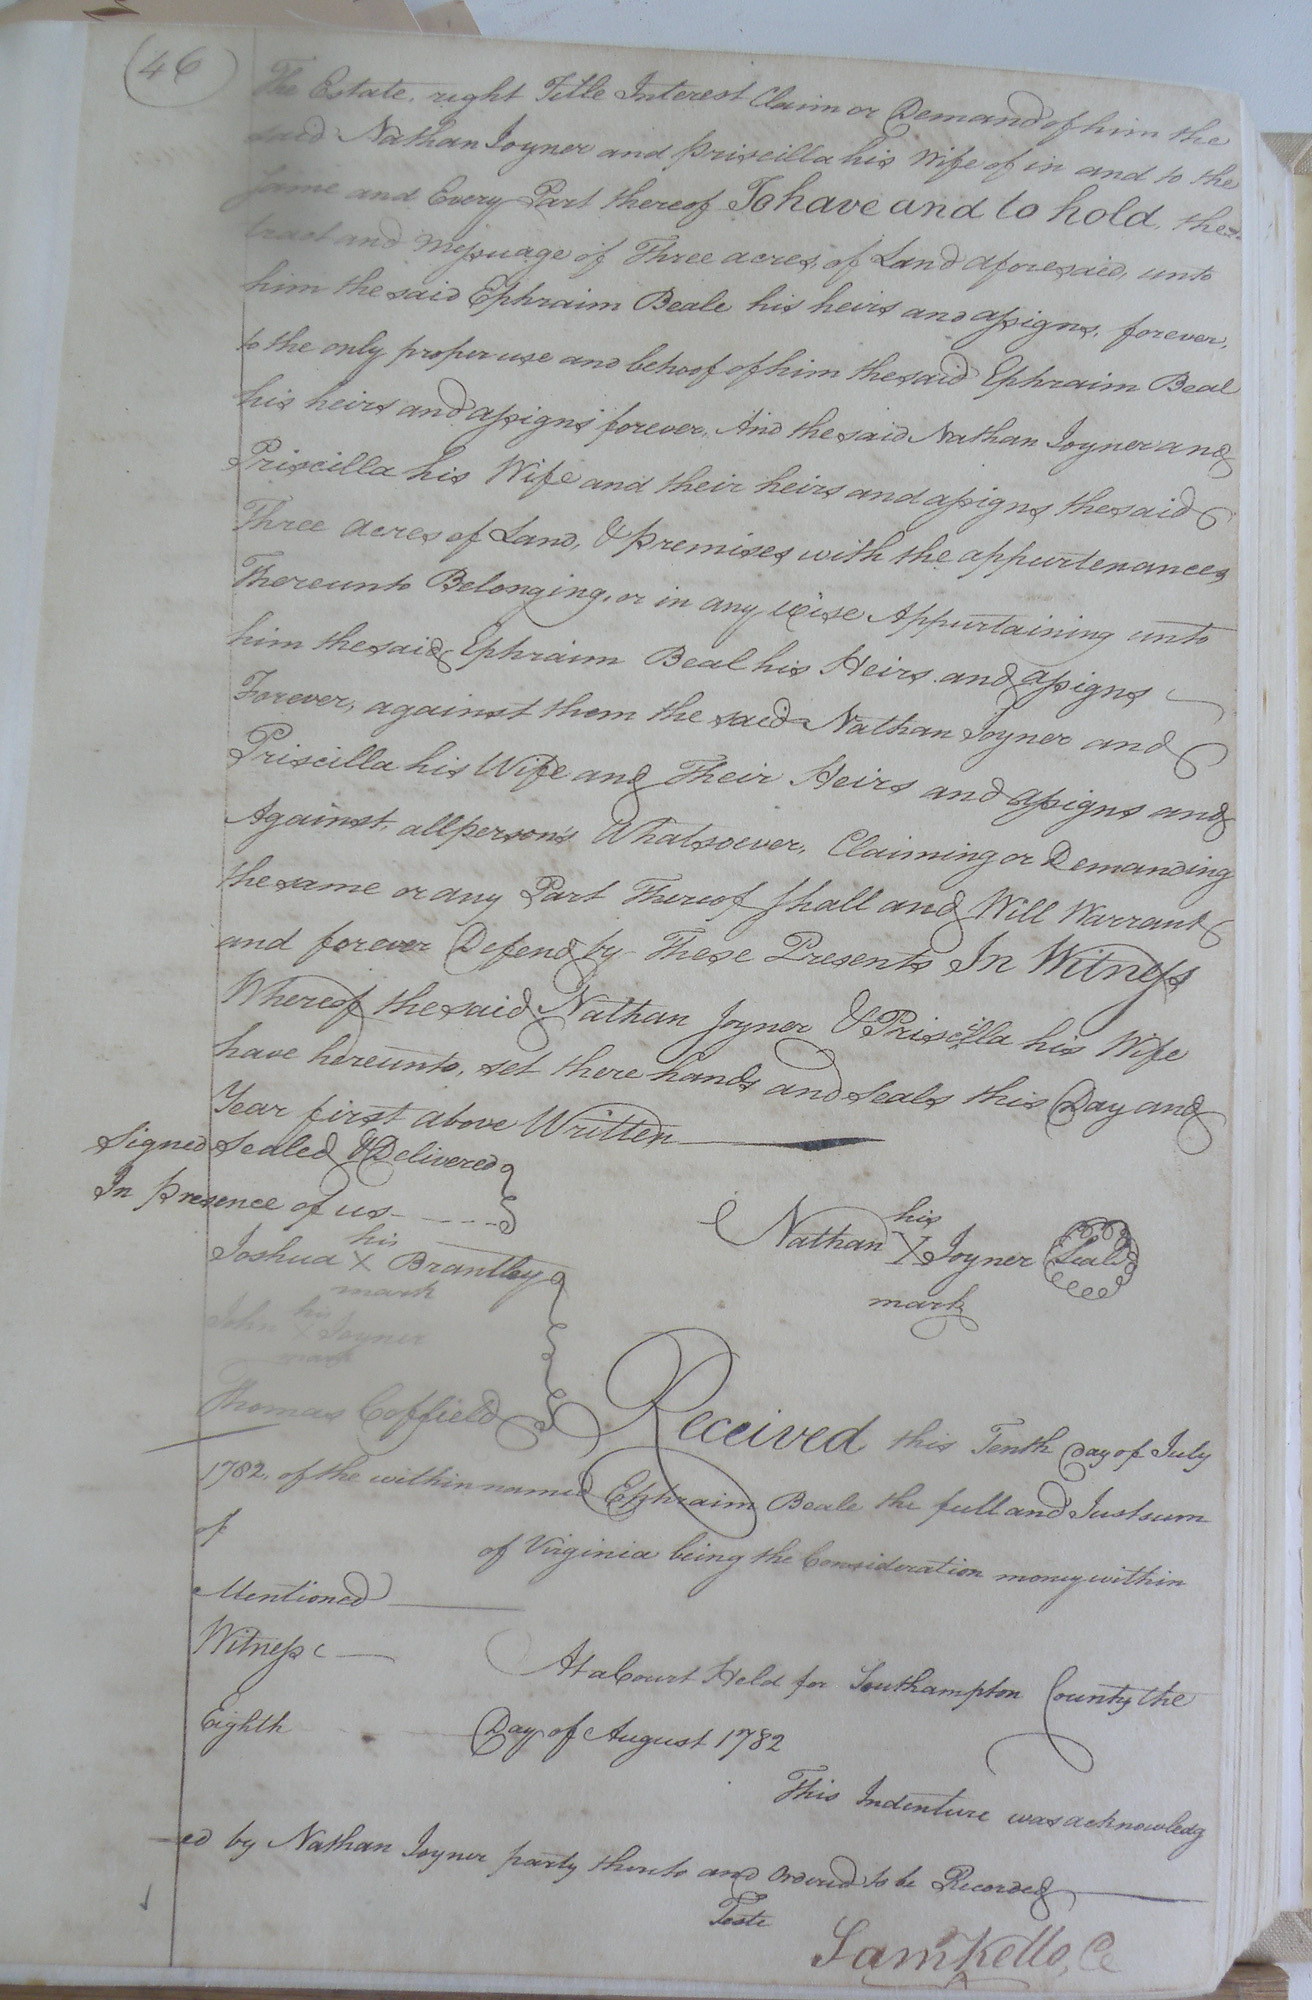 46
The Estate, right Title Interest Claim or Demand of him the
said Nathan Joyner and priscilla his Wife of in and to the
same and Every Part thereof To have and to hold, the
tract and Messuage of Three acres, of Land aforesaid, unto
him the said Ephraim Beale his heirs and assigns, forever,
to the only proper use and behoof of him the said Ephraim Beal
his heirs and assigns forever, And the said Nathan Joyner and
Priscilla his Wife and their heirs and assigns the said
Three acres of Land, & premises with the appurtenances
Thereunto Belonging, or in any wise Appurtaining unto
him the said Ephraim Beal his Heirs and assigns
Forever, against them the said Nathan Joyner and
Priscilla his Wife and Their Heirs and assigns and
Against, all person's Whatsoever, Claiming or Demanding
the same or any Part Thereof shall and Will Warrant
and forever Defend by These Presents In Witness
Whereof the said Nathan Joyner & Priscilla his Wife
have hereunto, set there hands and seals this Day and
Year first above Written
Signed Sealed & Delivered
In presence of us
his
Joshua X Brantley
mark
his
John X Joyner
mark
Thomas Coffield
his
Nathan X Joyner Seal
mark
Received this Tenth Day of July
1782, of the within named Ephraim Beale the full and Just sum
of of Virginia being the Consideration money within
Mentioned
Witness
At a Court Held for Southampton County the
Eighth Day of August 1782
This Indenture was acknowledg
ed by Nathan Joyner party thereto and ordered to be Recorded
Teste
Sam Kello, C